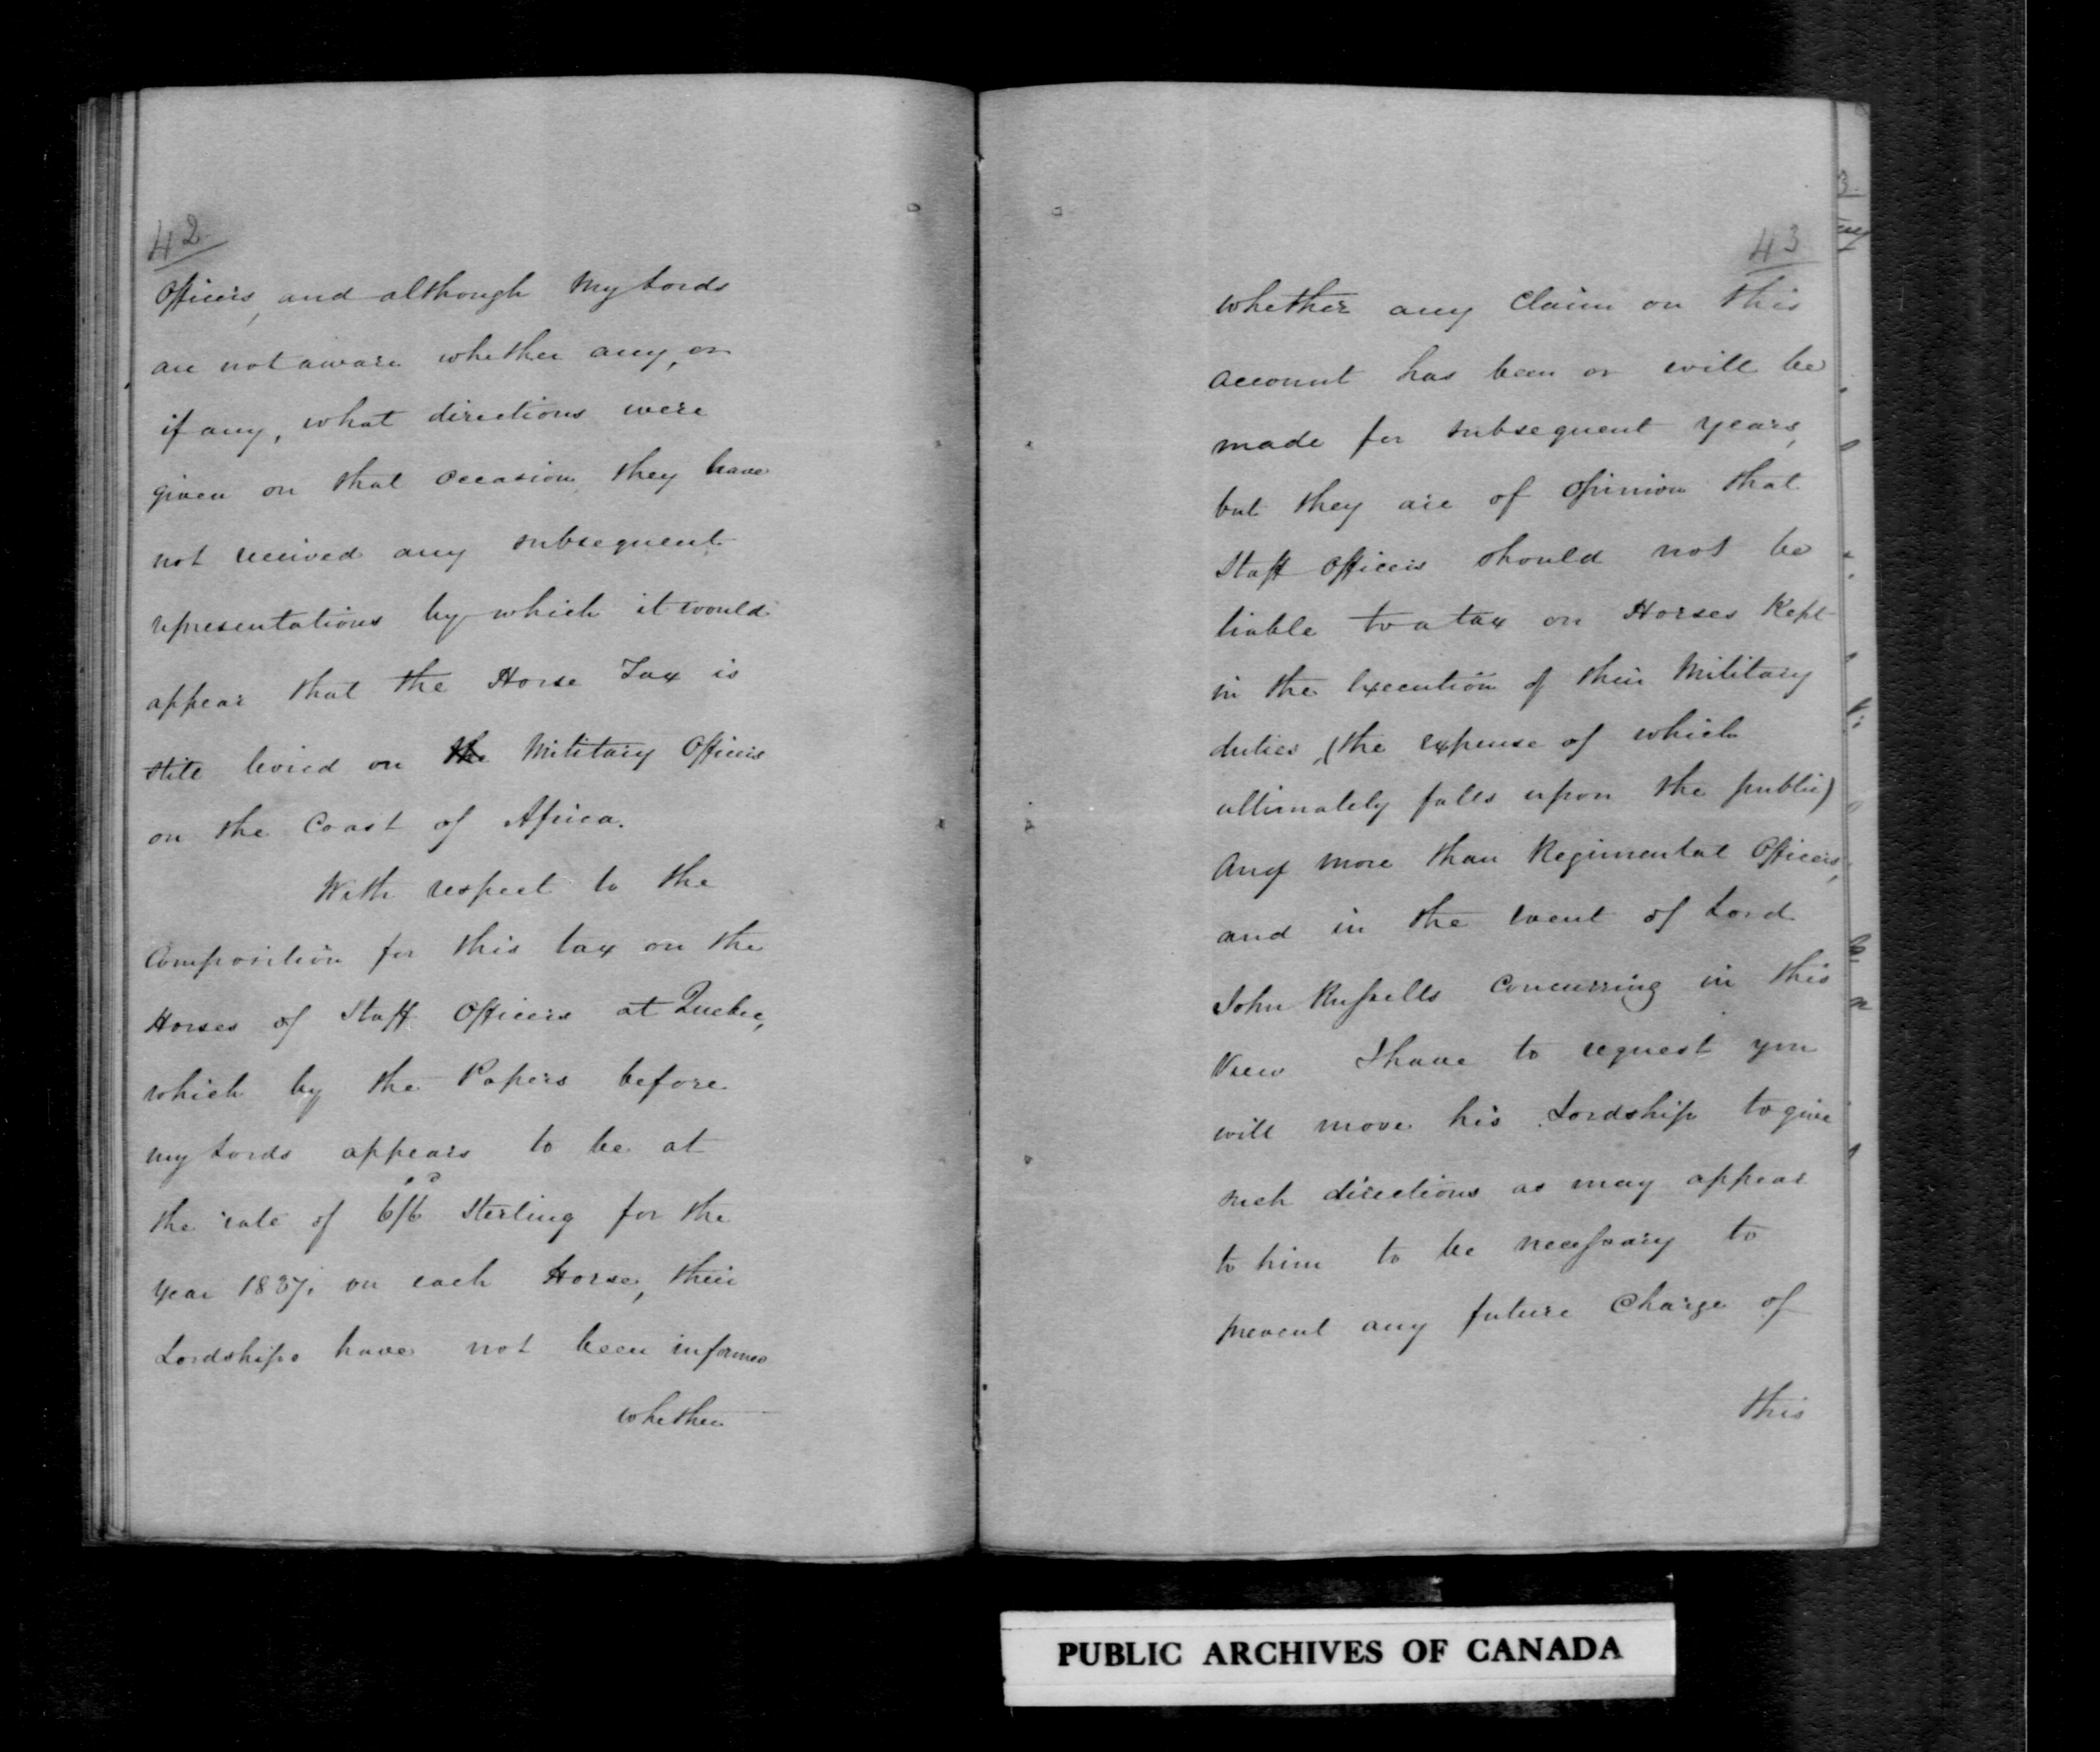 42
Officers, and although My Lords
are not aware whether any, or
if any, what directions were
given on that occasion they have
not received any subsequent
representations by which it would
appear that the Horse Tax is
still levied on the Military Officers
on the Coast of Africa.
With respect to the
Composition for this tax on the
Horses of Staff Officers at Quebec,
which by the Papers before
my Lords appears to be at
the rate of 6/6 Sterling for the
Year 1837. on each Horse, their
Lordships have not been informed
whether
43
whether any Claim on this
account has been or will be
made for subsequent years,
but they are of Opinion that
Staff Officers should not be
liable to a tax on Horses Kept
in the Execution of their Military
duties, (the expense of which
ultimately falls upon the public)
Any more than Regimental Officers,
and in the event of Lord
John Russells Concurring in this
View I have to request you
will move his Lordship to give
such directions as may appear
to him to be necessary to
prevent any future Charge of
this
PUBLIC ARCHIVES OF CANADA